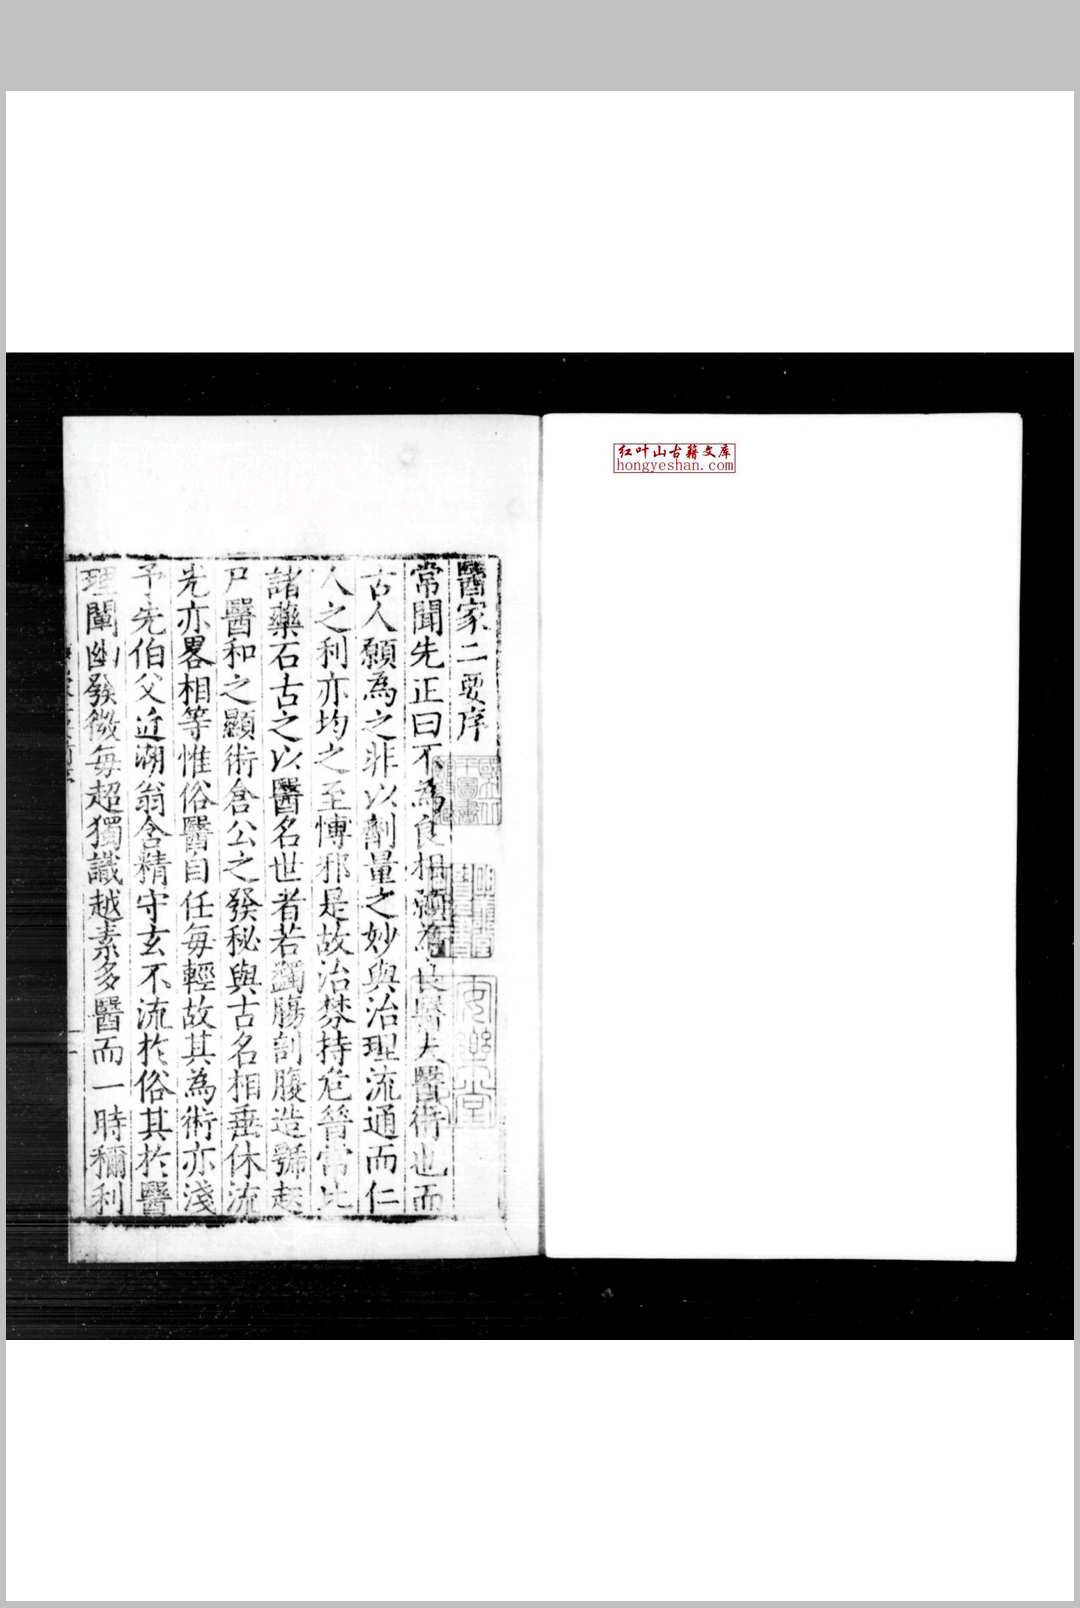 红叶山古籍文库
hongyeshan.com
醫家二要序
常聞先正曰不為良相願為良醫夫醫術也而
古人願為之非以劑量之妙與治理流通而仁
人之利亦均之至慱邪是故治棼持危啻當比
諸藥石古之以醫名世者若蠲膓剖腹造虢起
尸醫和之顯術倉公之發秘與古名相垂休流
光亦畧相等惟俗醫自任每輕故其為術亦淺
予先伯父近湖翁含精守玄不流於俗其於醫
理闡幽發微每超獨識越素多醫而一時稱利
安樂堂